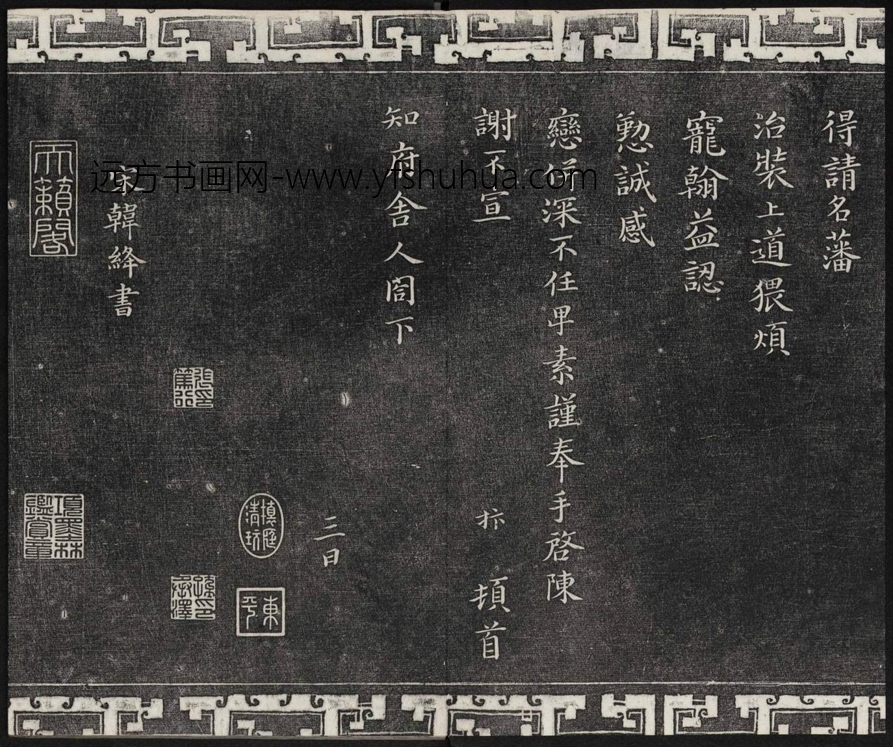 得請名藩
治裝上道猥煩
寵翰益認
懃誠感
戀深不任卑素謹奉手啓陳
謝不宣
頓首
知府舍人閤下
三日
韓絳書
天籟閣
項墨林鑑賞章
東平
远方书画网-www.yfshuhua.com